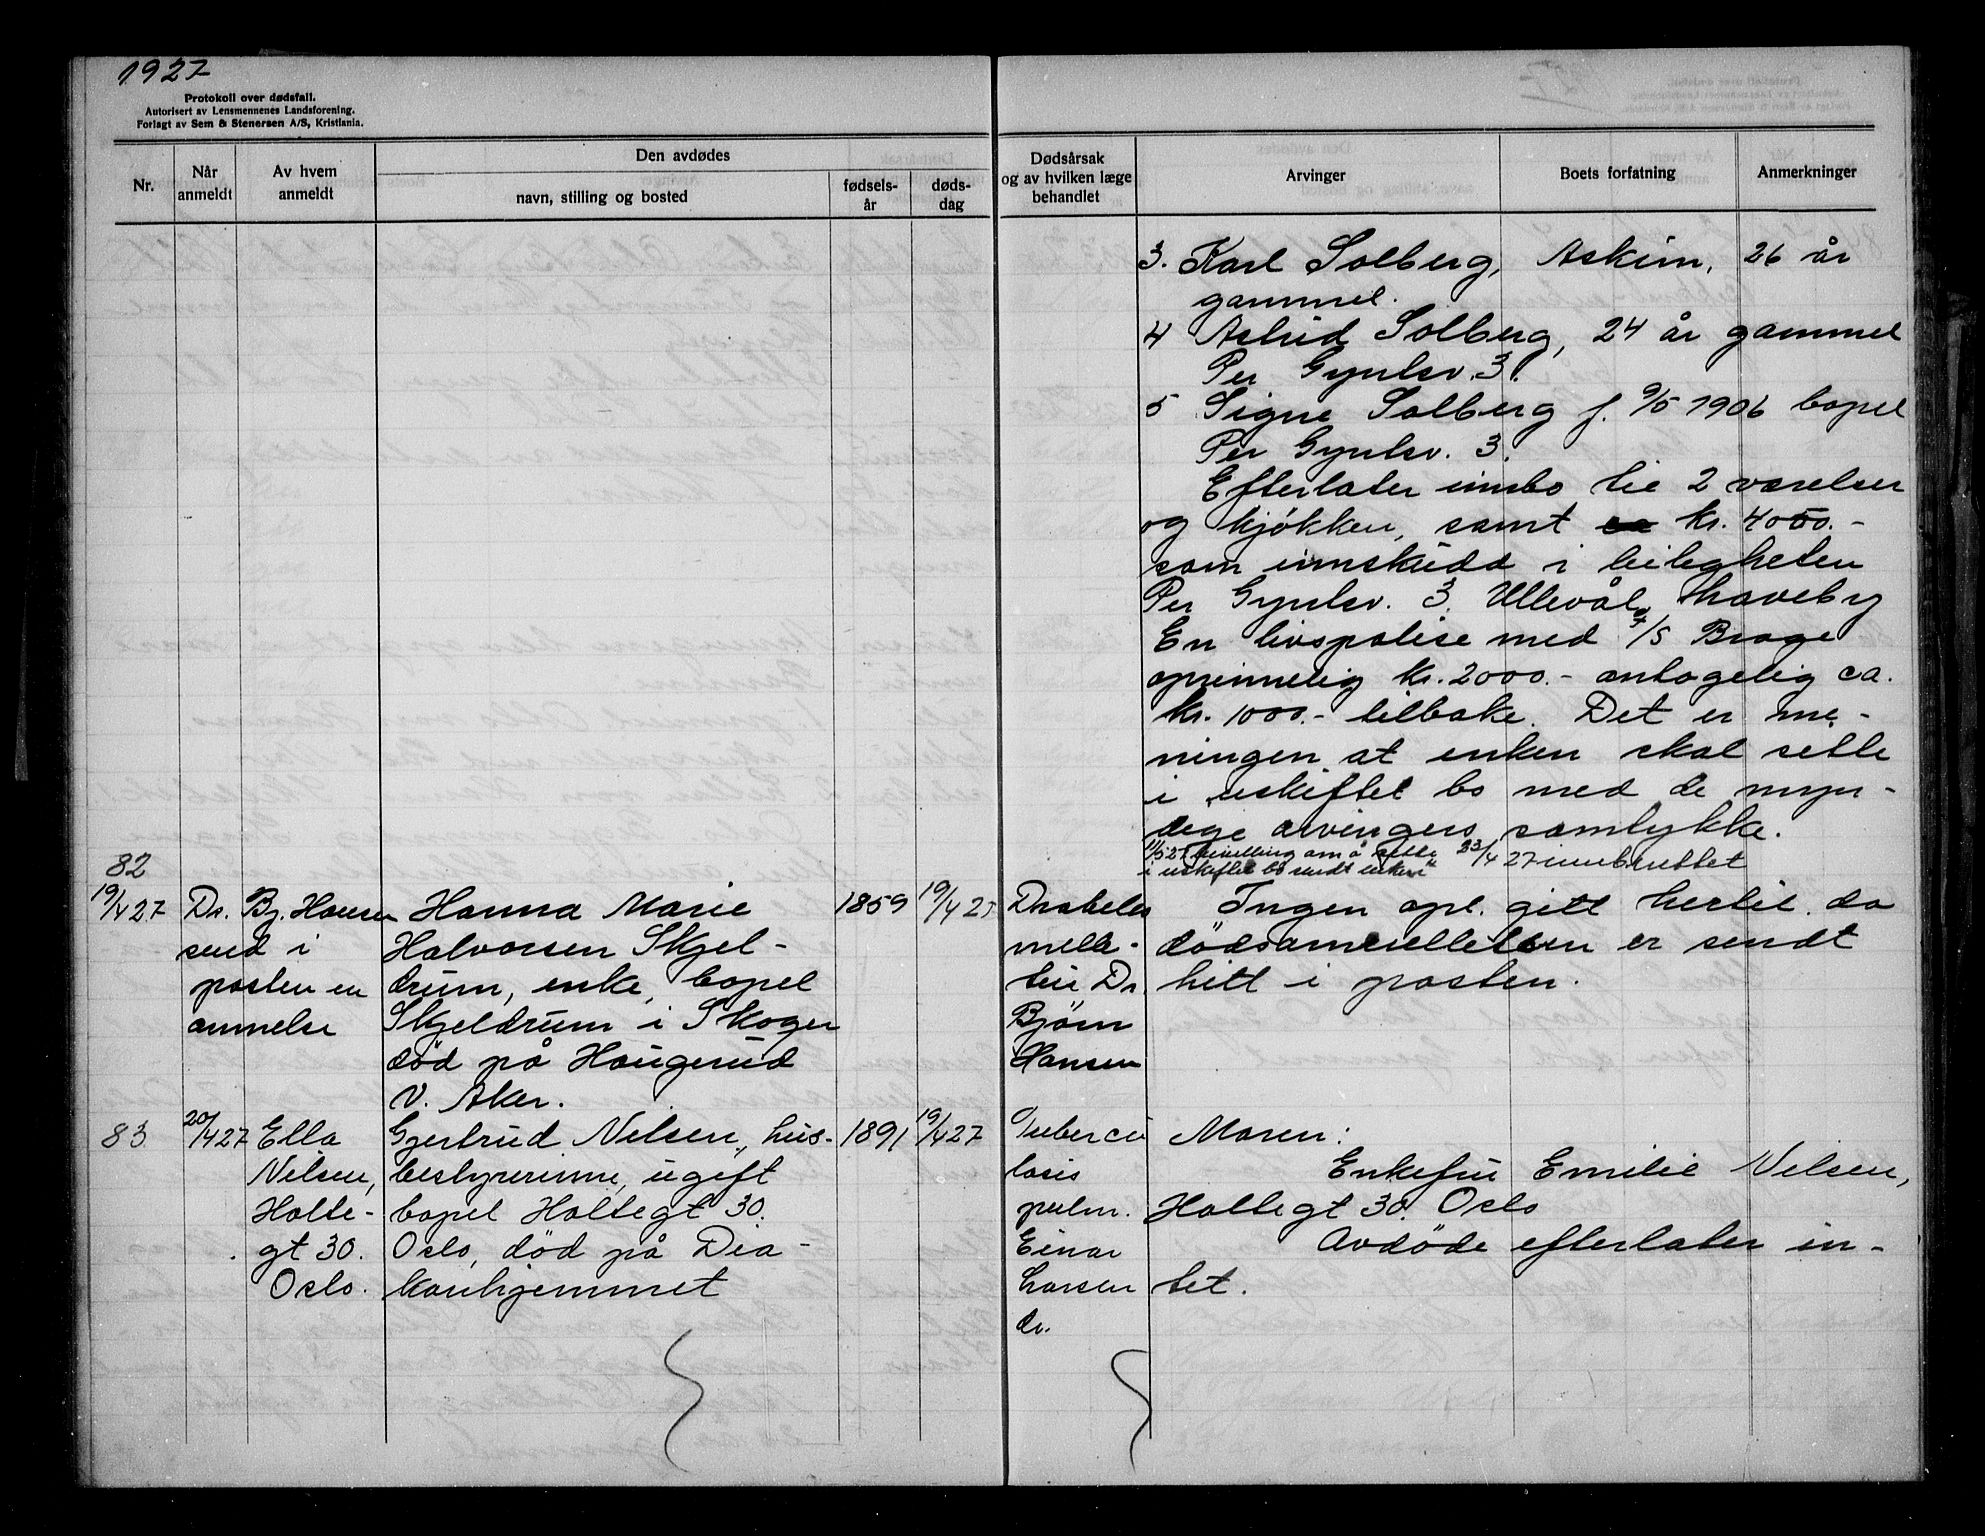 1927
Protokoll over dødsfall.
Autorisert av Lensmennenes Landsforening.
Forlagt av Sem & Stenersen A/S, Kristiania.
Nr.
Når anmeldt
Av hvem anmeldt
Den avdødes
navn, stilling og bosted
fødselsår
dødsdag
Dødsårsak og av hvilken læge behandlet
Arvinger
Boets forfatning
Anmerkninger
3. Karl Solberg, Askim, 26 år
gammel.
4 Astrid Solberg, 24 år gammel
Per Gyntsv. 3.
5 Signe Solberg f. 9/5 1906 bopel
Per Gyntsv. 3.
Efterlater innbo til 2 værelser
og kjøkken, samt ca kr. 4050.-
som innskudd i leiligheten
Per Gyntsv. 3. Ullevål haveby
En livspolise med A/S Brage
oprinnelig kr. 2000.- antagelig ca.
kr. 1000.- tilbake. Det er me-
ningen at enken skal sitte
i uskiftet bo med de myn-
dige arvingers samtykke.
11/5 27 bevilling om å sitte 23/4 27 innberettet
i uskiftet bo sendt enken
82
19/4 27
Dr. Bj. Hansen
send i
posten en
anmelse
Hanna Marie
Halvorsen Skjel-
drum, enke, bopel
Skjeldrum i Skoger
død på Haugerud
V. Aker.
1859
19/4 27
Diabetes
melli-
tus Dr.
Bjørn
Hansen
Ingen opl. gitt hertil da
dødsanmeldelsen er sendt
hitt i posten.
83
20/4 27
Ella
Nilsen,
Holte-
gt 30.
Oslo.
Gjertrud Nilsen, hus-
bestyrerinne, ugift
bopel Holtegt 30.
Oslo, død på Dia-
konhjemmet
1891
19/4 27
Tubercu
losis
pulm.
Einar
Larsen
dr.
Moren:
Enkefru Emilie Nilsen,
Holtegt 30. Oslo
Avdøde efterlater in-
tet.